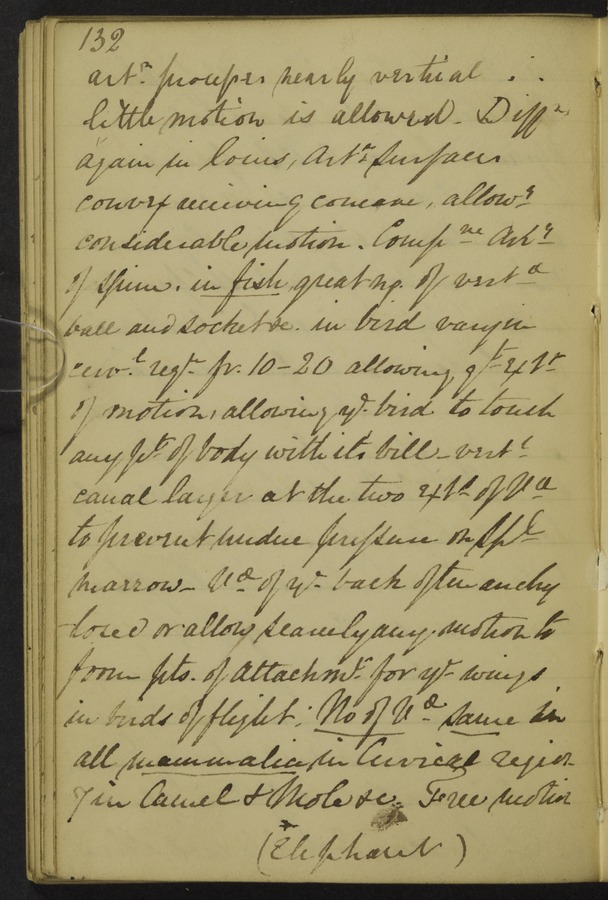 132
art.r processes nearly vertical ∴
little motion is allowed. Diff.nt
again in loins, Art.r surfaces
convex receiving concave, allow.g
considerable motion. Comp.ve Art.n
of spine. in fish great no. of vert.æ
ball and socket &c. in bird vary in
cerv.l reg.n fr. 10-20 allowing g.t ext.
of motion, allowing y.e bird to touch
any p.t of body with its bill - vert.l
canal larger at the two ext.s of V.æ
to prevent undue pressure on sp.l
marrow - V.æ of y.e back often anchy
losed or allow scarcely any motion to
form pts. of attachm.t for y.e wings
in birds of flight: No of V.æ same in
all mammalia in Cervical region
7 in Camel & Mole &c. Free motion
(Elephant)